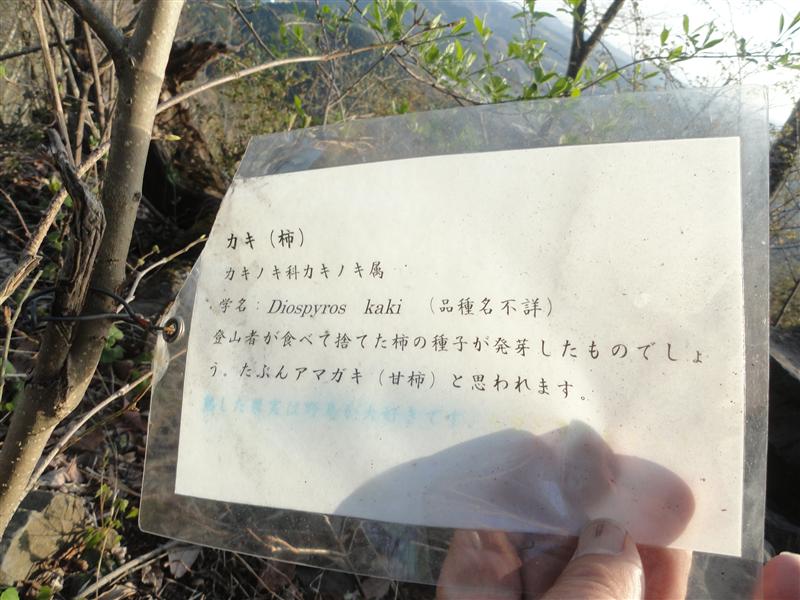 カキ（柿）
カキノキ科カキノキ属
学名：Diospyros kaki （品種名不詳）
登山者が食べて捨てた柿の種子が発芽したものでしょ
う。たぶんアマガキ（甘柿）と思われます。
熟した果実は野鳥が大好きです。